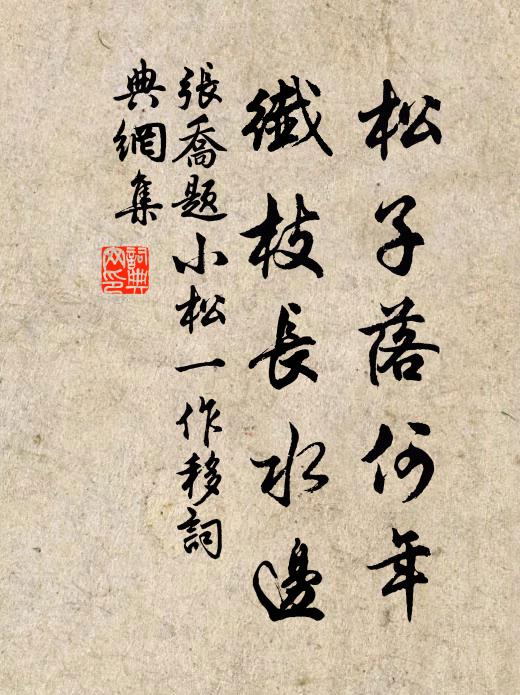 松子落何年
纖枝長水邊
張喬題小松一作移詞
典網集
詞典
网印